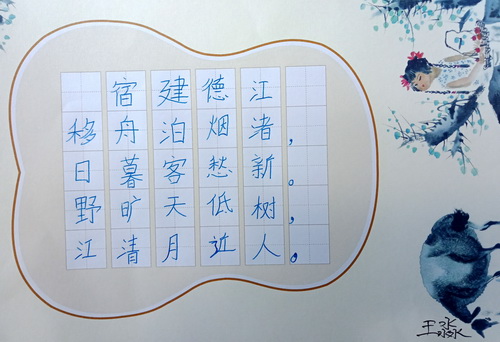 宿建德江
移舟泊烟渚，
日暮客愁新。
野旷天低树，
江清月近人。
王淼